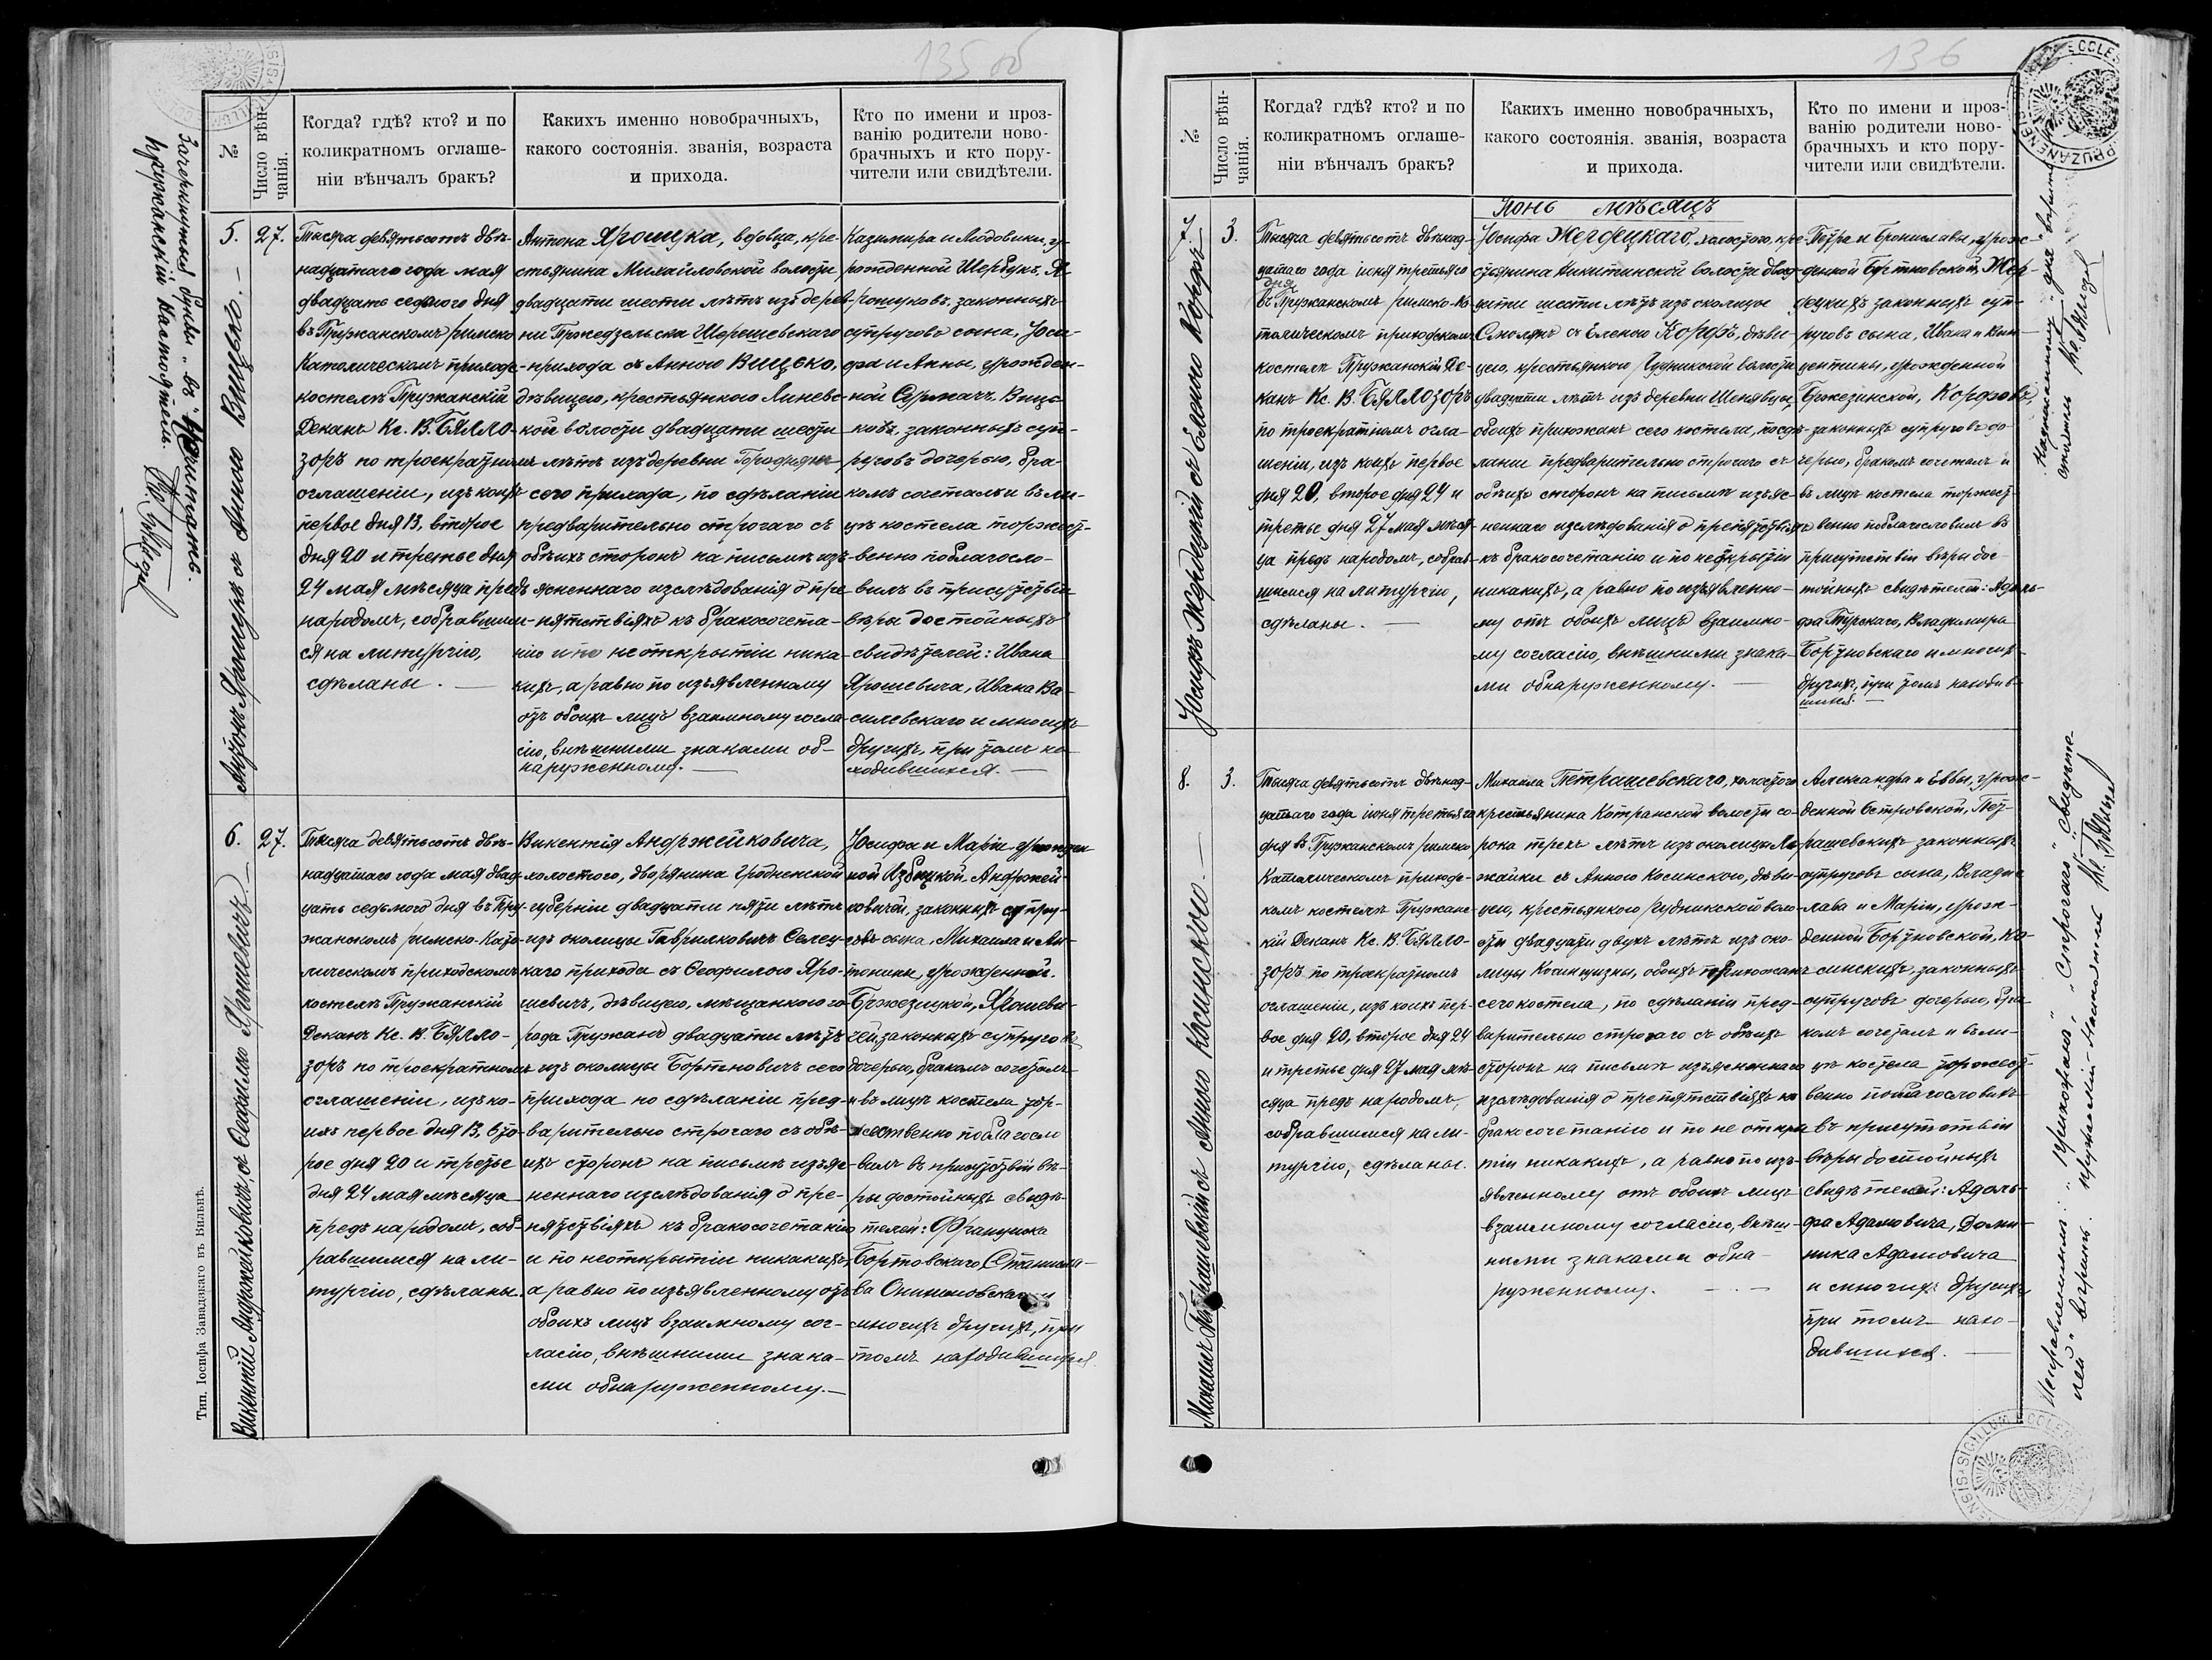 135 об
№
Число вѣн-
чанія.
Когда? гдѣ? кто? и по
коликратномъ оглаше-
ніи вѣнчалъ бракъ?
Какихъ именно новобрачныхъ,
какого состоянія. званія, возраста
и прихода.
Кто по имени и проз-
ванію родители ново-
брачныхъ и кто пору-
чители или свидѣтели.
Антонъ Ярощукъ съ Анною Вицько. —
5.
27.
Тысяча девятьсотъ двѣ-
надцатаго года мая
двадцать седьмого дня
въ Пружанскомъ римско
Католическомъ приходс-
костелѣ Пружанскій
Деканъ Кс. В. БЯЛЛО-
зоръ по троекратномъ
оглашеніи, изъ коихъ
первое дня 13, второе
дня 20 и третье дня
24 мая мѣсяца предъ
народомъ, собравшим-
ся на литургію,
сдѣланы. —
Антона Ярощука, вдовца, кре-
стьянина Михайловской волости
двадцати шести лѣтъ изъ дерев-
ни Прожедзельска Шерешевскаго
прихода съ Анною Вицько,
дѣвицею, крестьянкою Линевс-
кой волости двадцати шести
лѣтъ изъ деревни
сего прихода, по сдѣланіи
предварительно строгаго съ
обѣихъ сторонъ на письмѣ изъ-
ясненнаго изслѣдованія о пре
пятствіяхъ къ бракосочета-
нію и по неоткрытіи ника-
кихъ, а равно по изъявленному
отъ обоихъ лицъ взаимному согла-
сію, внѣшними знаками об-
наруженному. —
Казимира и Людовики, у-
рожденной Шербукъ, Я-
рощуковъ, законныхъ
супруговъ сына, Іоси-
фа и Анны, урожден-
ной Сурмачъ Виць-
ковъ, законныхъ суп-
руговъ дочерью, бра-
комъ сочеталъ и въ ли-
цѣ костела торжест-
венно поблагосло-
вилъ въ присутствіи
вѣры достойныхъ
свидѣтелей: Ивана
Ярошевича, Ивана Ва-
силевскаго и многихъ
другихъ, при томъ на-
ходившихся. —
Викентій Андржейковичъ, съ Ѳеофилою Ярошевичъ. —
6.
27.
Тысяча девятьсотъ двѣ-
надцатаго года мая двад-
цать седьмого дня въ Пру-
жанскомъ римско-Като-
лическомъ приходскомъ
костелѣ Пружанскій
Деканъ Кс. В. БЯЛЛО-
зоръ по троекратномъ
оглашеніи, изъ ко-
ихъ первое дня 13, вто-
рое дня 20 и третье
дня 24 мая мѣсяца
предъ народомъ, соб-
равшимся на ли-
тургію, сдѣланы.
Викентія Андржейковича,
холостого, дворянина Гродненской
губерніи двадцати пяти лѣтъ
изъ околицы Гаврилковичъ Селец-
каго прихода съ Ѳеофилою Яро-
шевичъ, дѣвицею, мѣщанкою го-
рода Пружанъ двадцати лѣтъ
изъ околицы Бортновичъ сего
прихода по сдѣланіи пред-
варительно строгаго съ обѣ-
ихъ сторонъ на письмѣ изъяс-
неннаго изслѣдованія о пре-
пятствіяхъ къ бракосочетанію
и по неоткрытіи никакихъ,
а равно по изъявленному отъ
обоихъ лицъ взаимному сог-
ласію, внѣшними знака-
ми обнаруженному. —
Іосифа и Маріи, урожден
ной Избицкой Андржей-
ковичей, законныхъ супру-
говъ сына, Михаила и Ан-
тонины, урожденной
Бржезицкой, Ярошеви-
чей, законныхъ супруговъ
дочерью, бракомъ сочеталъ
и въ лицѣ костела тор-
жественно поблагосло
вилъ въ присутствіи вѣ-
ры достойныхъ свидѣ-
телей: Францишка
Бортновскаго, Станисла-
ва и
многихъ другихъ, при
томъ находившихся.
Зачеркнутыя буквы „въ" Нечитать.
Пружанскій Настоятель
Тип. Іосифа Завадзкаго въ Вильнѣ.
136
№
Число вѣн-
чанія.
Когда? гдѣ? кто? и по
коликратномъ оглаше-
ніи вѣнчалъ бракъ?
Какихъ именно новобрачныхъ,
какого состоянія. званія, возраста
и прихода.
Кто по имени и проз-
ванію родители ново-
брачныхъ и кто пору-
чители или свидѣтели.
Іюнь мѣсяцъ
Іосифъ Жердецкій съ Еленою Корфъ —
7.
3.
Тысяча девятьсотъ двѣнад-
цатаго года іюня третьяго
дня
въ Пружанскомъ римско-Ка
толическомъ приходскомъ
костелѣ Пружанскій Де-
канъ Кс. В. БЯЛЛОЗОРЪ
по троекратномъ огла-
шеніи, изъ коихъ первое
дня 20, второе дня 24 и
третье дня 27 мая мѣся-
ца предъ народомъ, собрав-
шимся на литургію,
сдѣланы. —
Іосифа Жердецкаго, холостого, кре-
стьянина Микитинской волости двад-
цати шести лѣтъ изъ околицы
Смолянъ съ Еленою Корфъ, дѣви-
цею, крестьянкою Рудникской волости
двадцати лѣтъ изъ деревни Шенявцы,
обоихъ прихожанъ сего костела, по сдѣ-
ланіи предварительно строгаго съ
обѣихъ сторонъ на письмѣ изъяс-
неннаго изслѣдованія о препятствіяхъ
къ бракосочетанію и по неоткрытіи
никакихъ, а равно по изъявленно-
му отъ обоихъ лицъ взаимно-
му согласію, внѣшними знака-
ми обнаруженному. —
Петра и Брониславы, урож-
денной Бортновской, Жер-
децкихъ законныхъ суп-
руговъ сына, Ивана и Вин-
центины, урожденной
Бржезинской, Корфовъ,
законныхъ супруговъ до-
черью, бракомъ сочеталъ и
въ лицѣ костела торжест-
венно поблагословилъ въ
присутствіи вѣры дос-
тойныхъ свидѣтелей: Адоль-
фа Турскаго, Владимира
Бортновскаго и многихъ
другихъ, при томъ находив-
шихся. —
Михаилъ Петрашевскій съ Анною Косинскою. —
8.
3.
Тысяча девятьсотъ двѣнад-
цатаго года іюня третьяго
дня въ Пружанскомъ римско
Католическомъ приходс-
комъ костелѣ Пружанс-
кій Деканъ Кс. В. БЯЛЛО-
зоръ по троекратномъ
оглашеніи, изъ коихъ пер-
вое дня 20, второе дня 24
и третье дня 27 мая мѣ-
сяца предъ народомъ,
собравшимся на ли-
тургію, сдѣланы.
Михаила Петрашевскаго, холостого
крестьянина Котранской волости со-
рока трехъ лѣтъ изъ околицы
съ Анною Косинскою, дѣви-
цею, крестьянкою Рудникской воло-
сти двадцати двухъ лѣтъ изъ око-
лицы Косинщизны, обоихъ прихожанъ
сего костела, по сдѣланіи пред-
варительно строгаго съ обѣихъ
сторонъ на письмѣ изъясненнаго
изслѣдованія о препятствіяхъ къ
бракосочетанію и по не откры
тіи никакихъ, а равно по изъ-
явленному отъ обоихъ лицъ
взаимному согласію, внѣш-
ними знаками обна-
руженному. —
Александра и Еввы, урож-
денной Островской, Пет-
рашевскихъ законныхъ
супруговъ сына, Владис
лава и Маріи, урож-
денной Бортновской, Ко-
синскихъ, законныхъ
супруговъ дочерью, бра-
комъ сочеталъ и въ ли-
цѣ костела торжест-
венно поблагословилъ
въ присутствіи
вѣры достойныхъ
свидѣтелей: Адоль-
фа Адамовича, Доми-
ника Адамовича
и многихъ другихъ
при томъ нахо-
дившихся. —
Надписанному „дня" вѣрить
Исправленнымъ: „приходской", „строгаго", „свидѣте-
лей" вѣрить. Пружанскій Настоятель